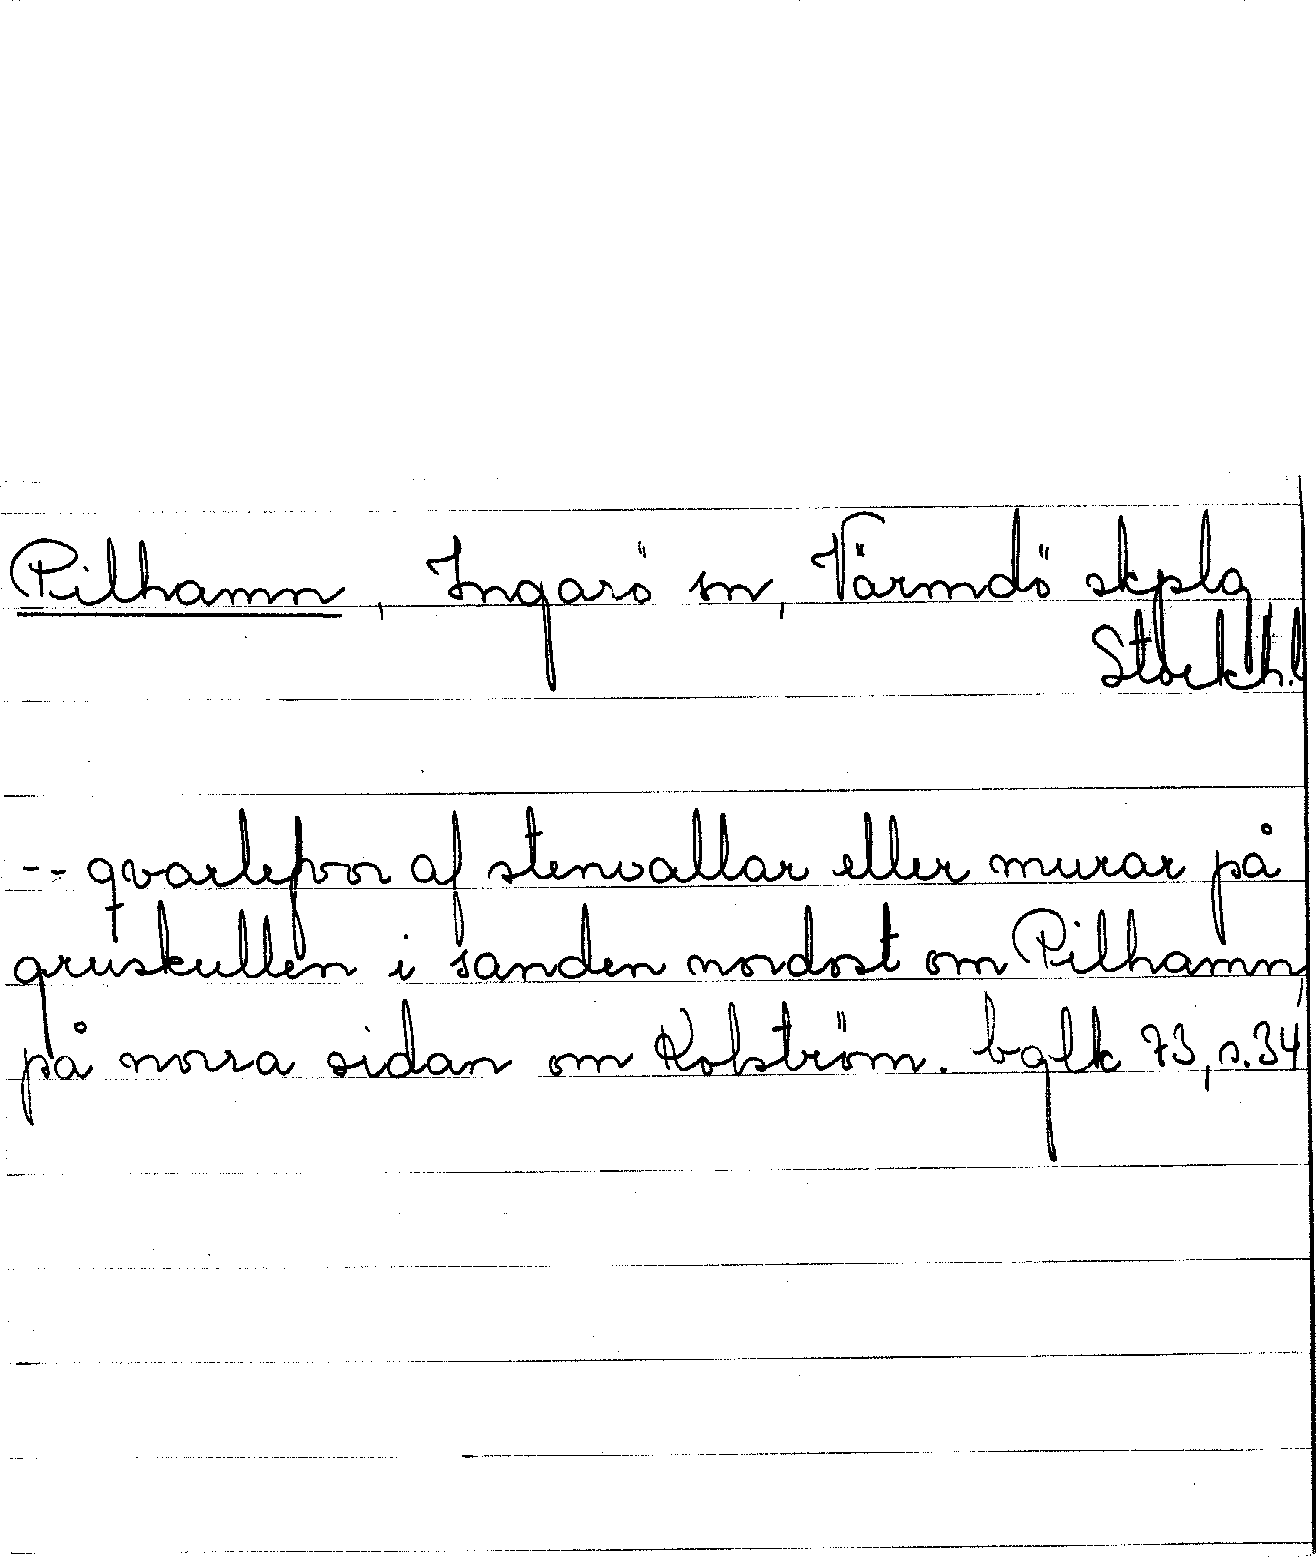 Pilhamn, Ingarö sn, Värmdö skplg
Stockh.l
-- qvarlefvor af stenvallar eller murar på
gruskullen i sanden nordost om Pilhamn,
på norra sidan om Kolström. bglk 73, s.34